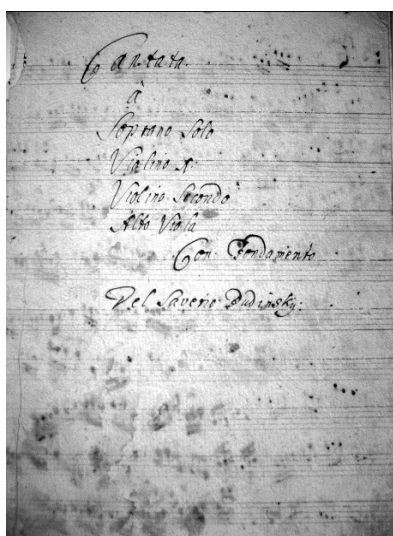 Cantata
à
Soprano Solo
Violino
Violino Secondo
Alto Viola
Con Fondamento
Del Saverio Dudinsky: